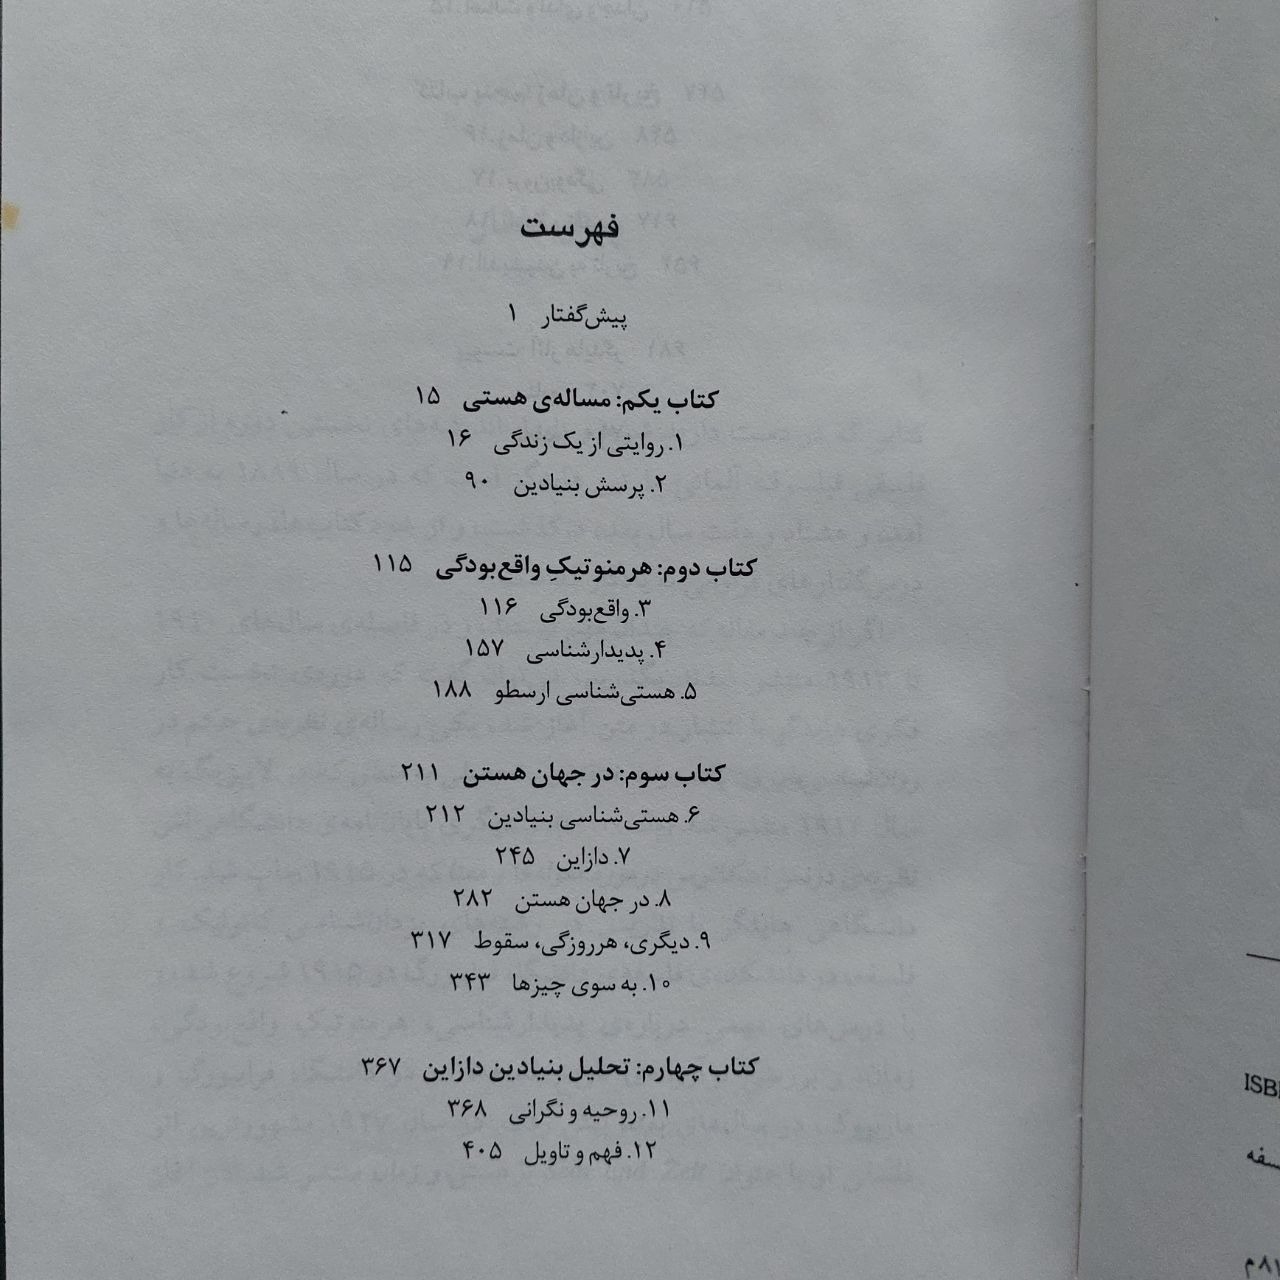 فهرست
پیش‌گفتار ۱
کتاب یکم: مساله‌ی هستی ۱۵
۱. روایتی از یک زندگی ۱۶
۲. پرسش بنیادین ۹۰
کتاب دوم: هرمنوتیکِ واقع‌بودگی ۱۱۵
۳. واقع‌بودگی ۱۱۶
۴. پدیدارشناسی ۱۵۷
۵. هستی‌شناسی ارسطو ۱۸۸
کتاب سوم: در جهان هستن ۲۱۱
۶. هستی‌شناسی بنیادین ۲۱۲
۷. دازاین ۲۴۵
۸. در جهان هستن ۲۸۲
۹. دیگری، هرروزگی، سقوط ۳۱۷
۱۰. به سوی چیزها ۳۴۳
کتاب چهارم: تحلیل بنیادین دازاین ۳۶۷
۱۱. روحیه و نگرانی ۳۶۸
۱۲. فهم و تاویل ۴۰۵